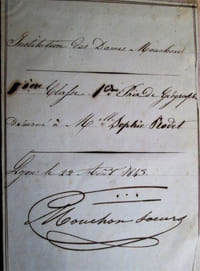 Institution des Dames Mouchon
1ère Classe 1er Prix de Géographie
Décerné à Melle Sophie Rodet
Lyon le 22 Août 1843
Mouchon Soeurs